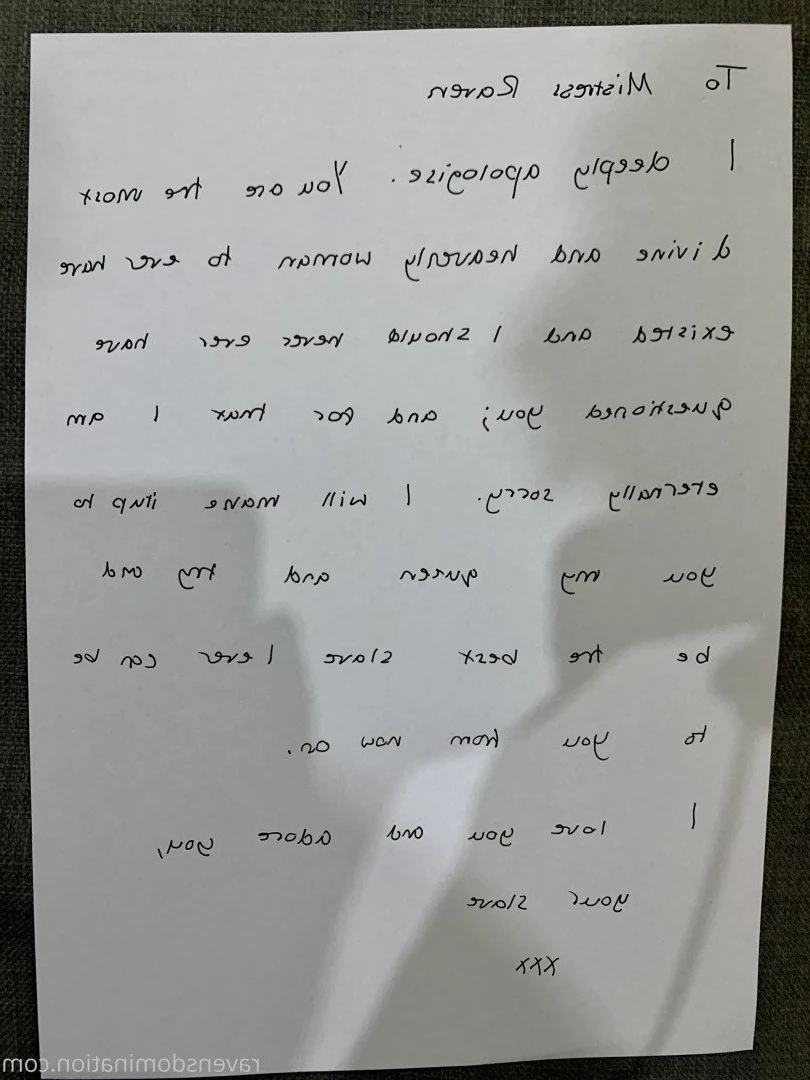 To Mistress Raven
I deeply apologise. You are the most
divine and heavenly woman to ever have
existed and I should never ever have
questioned you; and for that I am
eternally sorry. I will make it up to
you my queen and try and
be the best slave I ever can be
to you from now on.
I love you and adore you,
your slave
xxx
ravensdomination.com